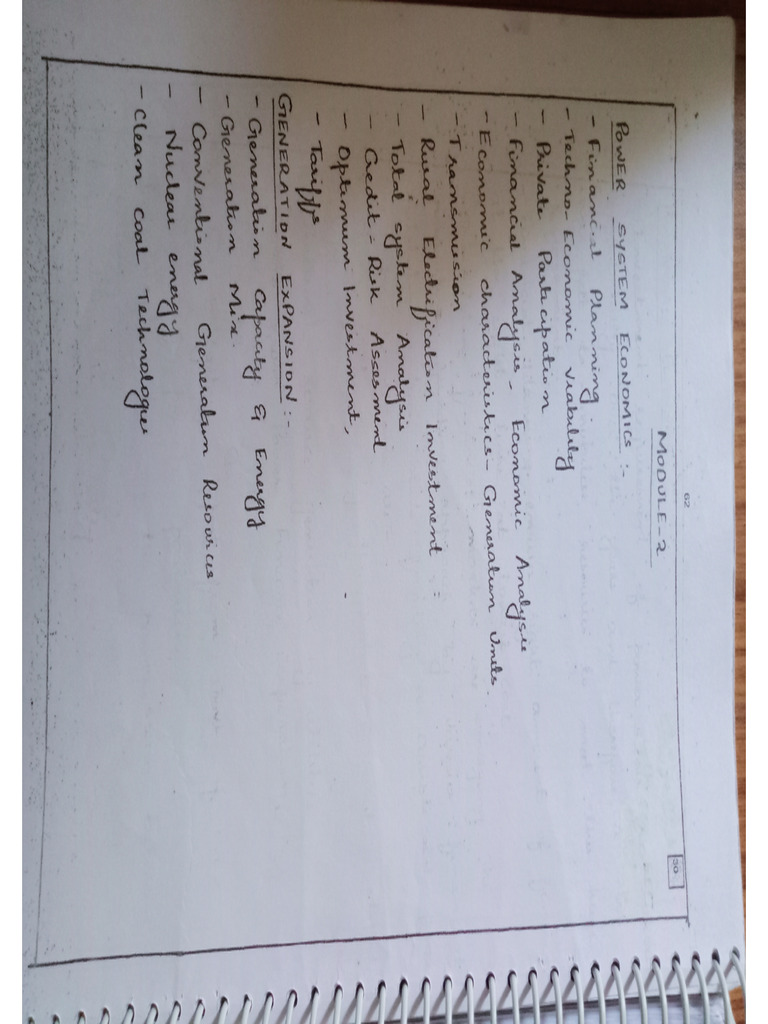 62
30
MODULE-2
POWER SYSTEM ECONOMICS :-
- Financial Planning.
- Techno-Economic viability
- Private Participation
- Financial Analysis, Economic Analysis
- Economic characteristics - Generation Units.
- Transmission
- Rural Electrification Investment :
- Total system Analysis
- Credit-Risk Assesment
- Optimum Investment,
- Tariffs
GENERATION EXPANSION :-
- Generation Capacity & Energy
- Generation Mix.
- Conventional Generation Resources
- Nuclear energy
- Clean coal Technologies